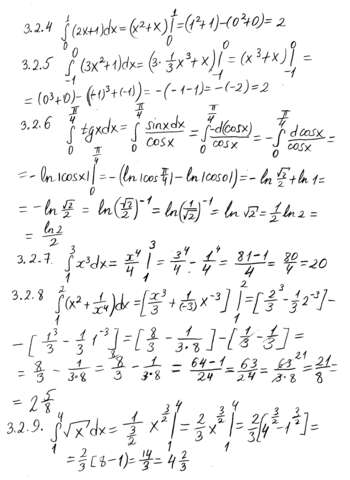 3.2.4 ∫₀¹ (2x+1)dx = (x²+x)|₀¹ = (1²+1)-(0²+0) = 2
3.2.5 ∫₋₁⁰ (3x²+1)dx = (3·1/3 x³+x)|₋₁⁰ = (x³+x)|₋₁⁰ =
= (0³+0) - ((-1)³+(-1)) = -(-1-1) = -(-2) = 2
3.2.6 ∫₀^(π/4) tgxdx = ∫₀^(π/4) sinxdx/cosx = ∫₀^(π/4) -d(cosx)/cosx = -∫₀^(π/4) dcosx/cosx =
= -ln|cosx||₀^(π/4) = -(ln|cos π/4| - ln|cos0|) = -ln √2/2 + ln1 =
= -ln √2/2 = ln(√2/2)⁻¹ = ln(1/√2)⁻¹ = ln√2 = 1/2 ln2 =
= ln2/2
3.2.7. ∫₁³ x³dx = x⁴/4 |₁³ = 3⁴/4 - 1⁴/4 = (81-1)/4 = 80/4 = 20
3.2.8 ∫₁² (x²+1/x⁴)dx = [x³/3 + 1/(-3) x⁻³]|₁² = [2³/3 - 1/3 2⁻³] -
- [1³/3 - 1/3 1⁻³] = [8/3 - 1/(3·8)] - [1/3 - 1/3] =
= 8/3 - 1/(3·8) = 8/3 - 1/(3·8) = (64-1)/24 = 63/24 = 63²¹/(3·8) = 21/8 =
= 2 5/8
3.2.9. ∫₁⁴ √x dx = 1/(3/2) x^(3/2)|₁⁴ = 2/3 x^(3/2)|₁⁴ = 2/3[4^(3/2) - 1^(3/2)] =
= 2/3[8-1] = 14/3 = 4 2/3